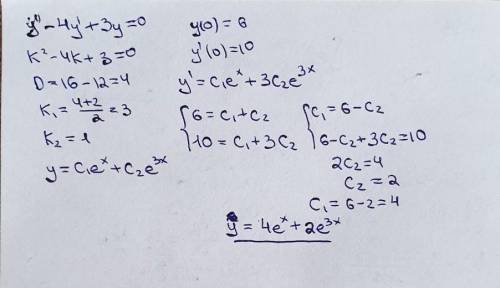 y'' - 4y' + 3y = 0
k² - 4k + 3 = 0
D = 16 - 12 = 4
k₁ = (4+2)/2 = 3
k₂ = 1
y = C₁eˣ + C₂e³ˣ
y(0) = 6
y'(0) = 10
y' = C₁eˣ + 3C₂e³ˣ
{ 6 = C₁ + C₂
10 = C₁ + 3C₂
{ C₁ = 6 - C₂
6 - C₂ + 3C₂ = 10
2C₂ = 4
C₂ = 2
C₁ = 6 - 2 = 4
y = 4eˣ + 2e³ˣ